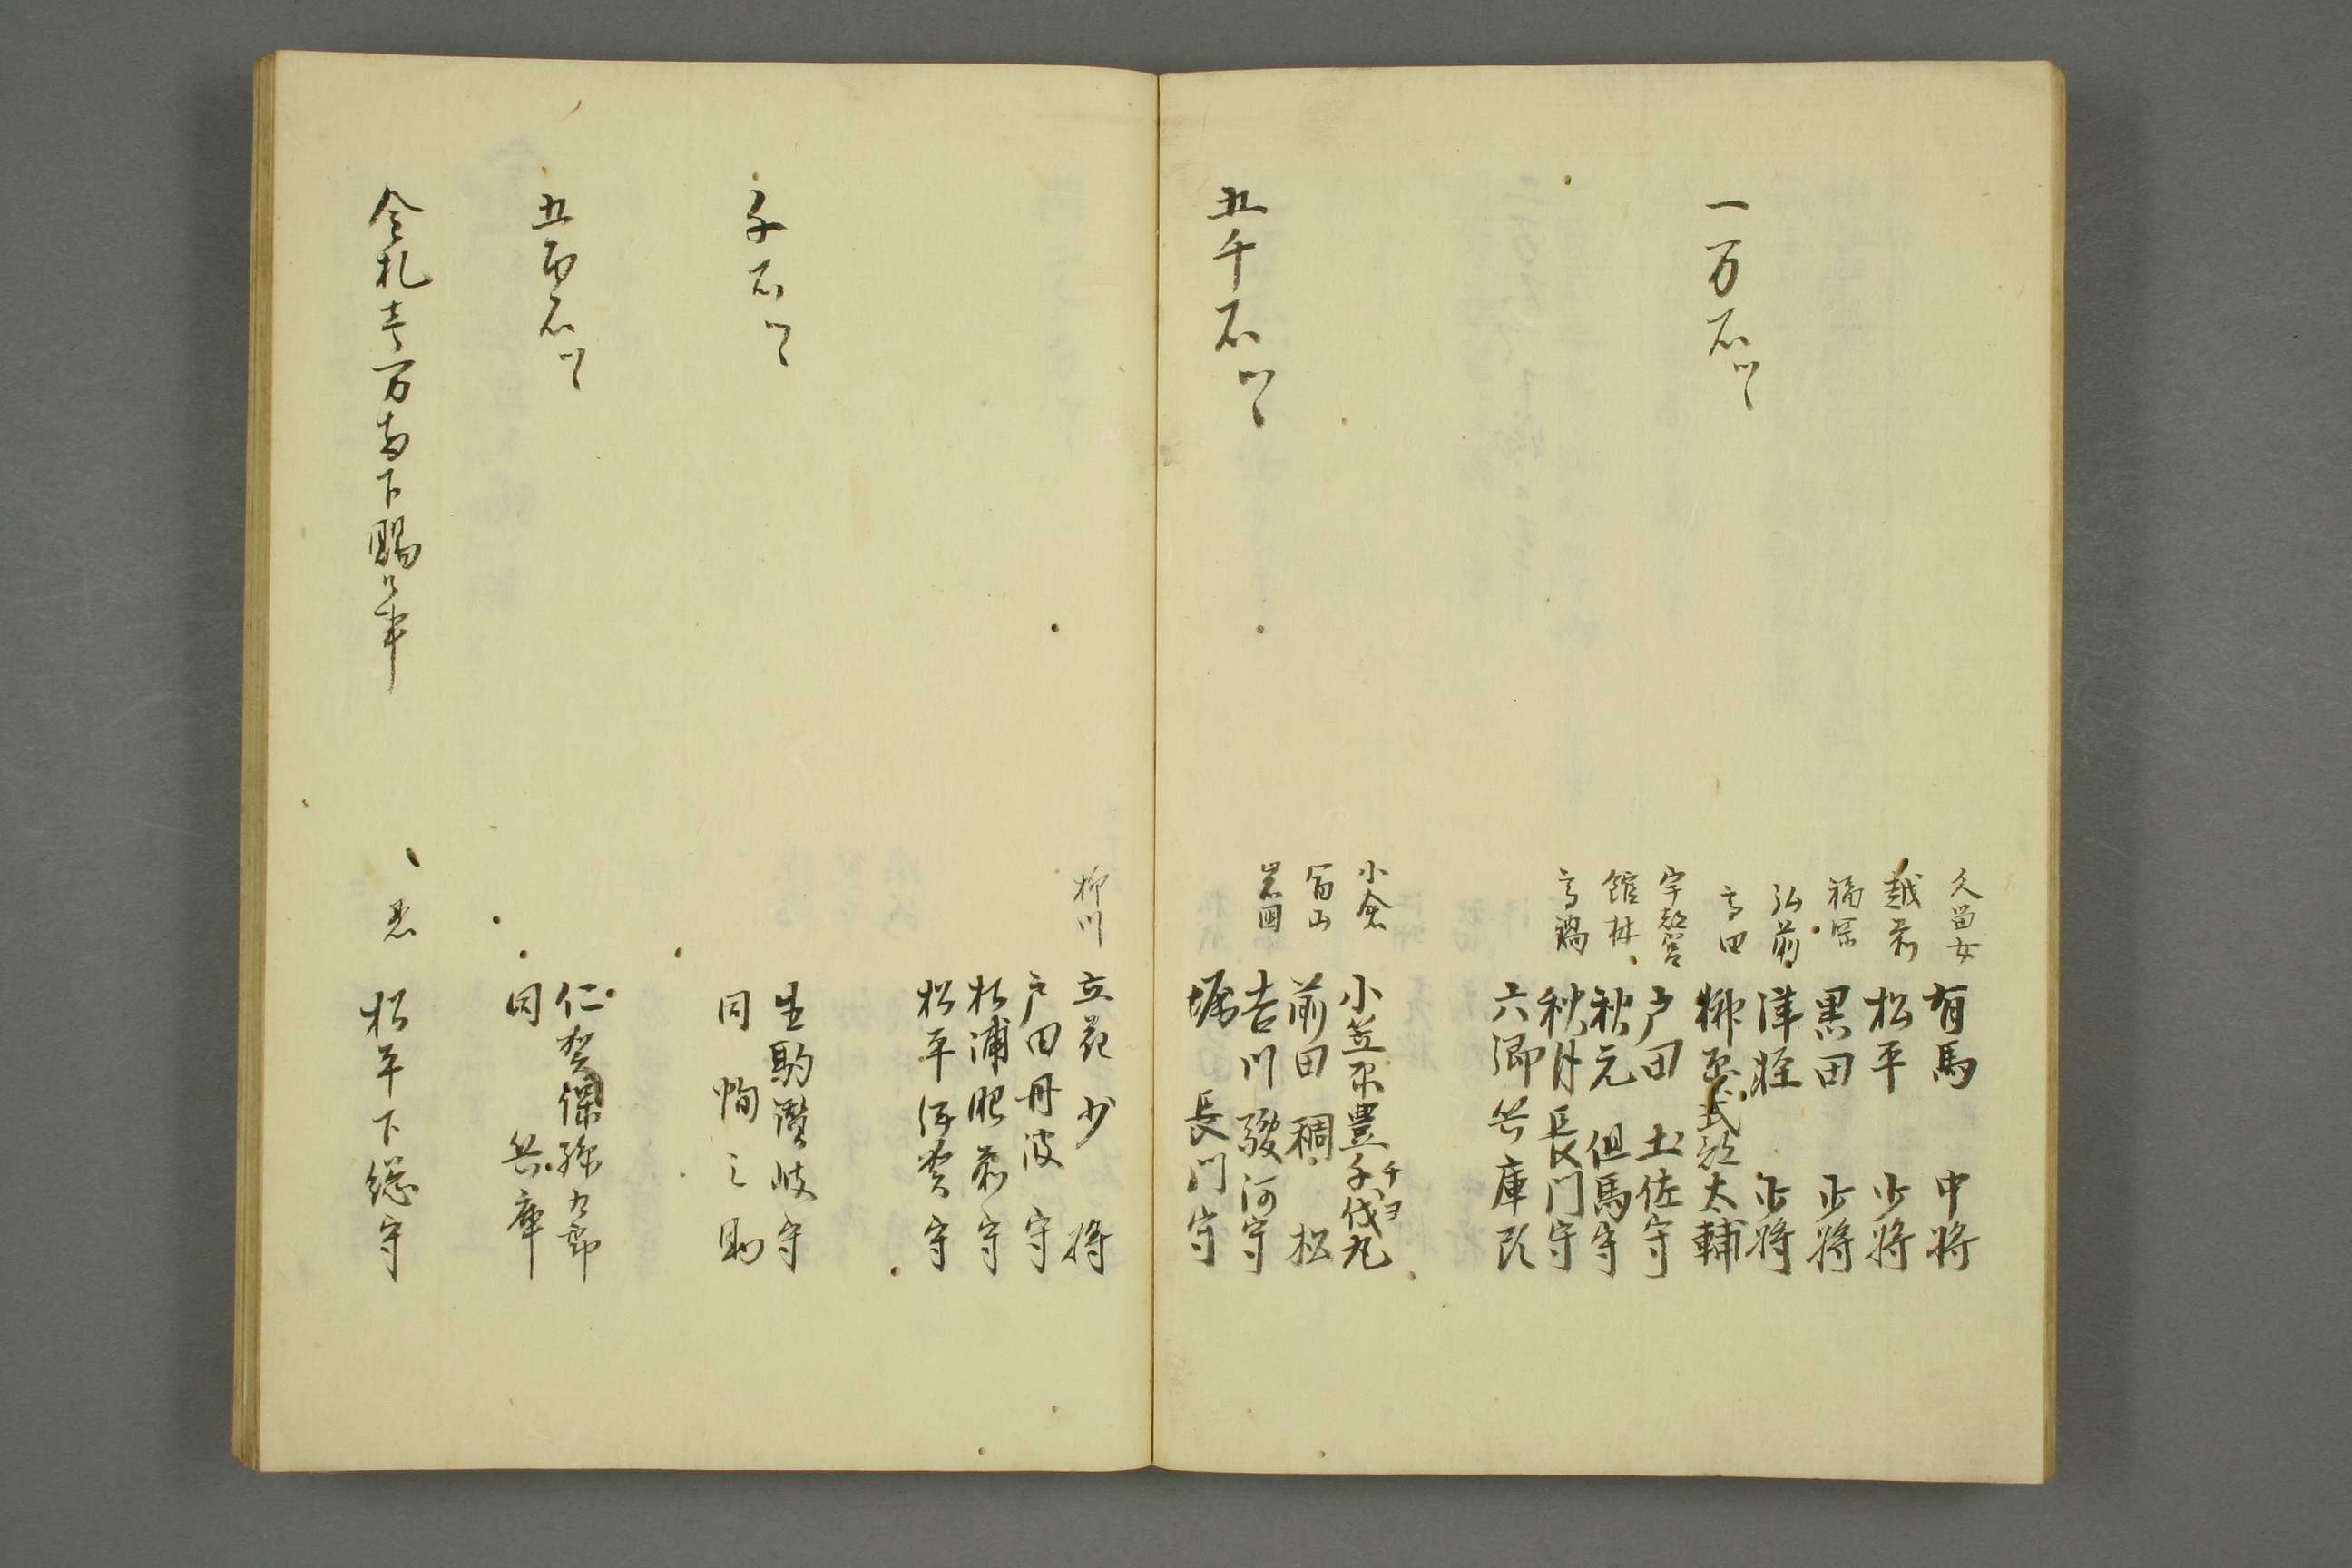 一万石ツヽ
久留女 有馬 中将
越前 松平 少将
福岡 黒田 少将
弘前 津軽 少将
高田 榊原式部太輔
宇都宮 戸田 土佐守
館林 秋元 但馬守
高鍋 秋月長門守
六郷兵庫頭
五千石ツヽ
小倉 小笠原豊千代丸
チヨ
富山 前田 稠 松
岩国 吉川駿河守
堀 長門守
柳川 立花 少 将
戸田丹波守
松浦肥前守
松平伊賀守
千石ツヽ
生駒讃岐守
同 之助
五百石ツヽ
仁賀保孫九郎
同 兵庫
金札壱万両下賜候事
忍 松平下総守